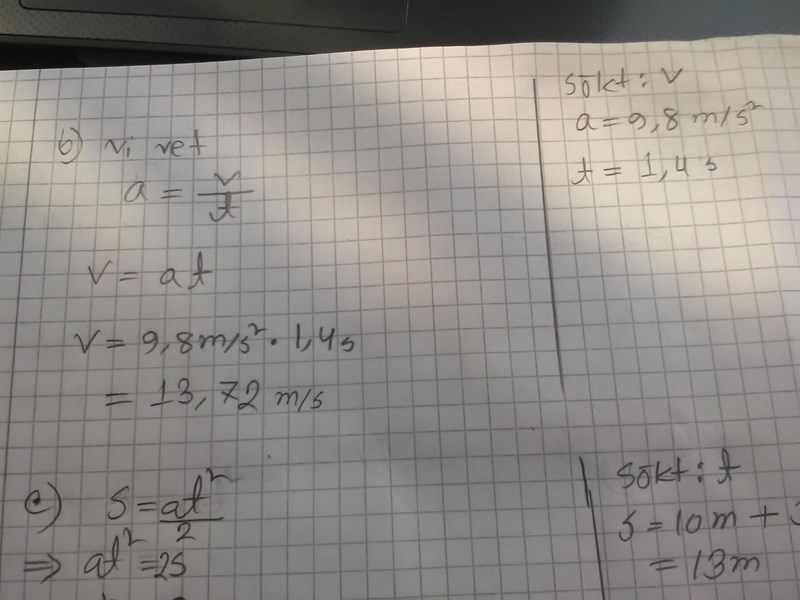 b) vi vet
a = v/t
v = at
v = 9,8 m/s² · 1,4 s
= 13,72 m/s
Sökt: v
a = 9,8 m/s²
t = 1,4 s
c) s = at²/2
⇒ at² = 2s
Sökt: t
s = 10m +
= 13m